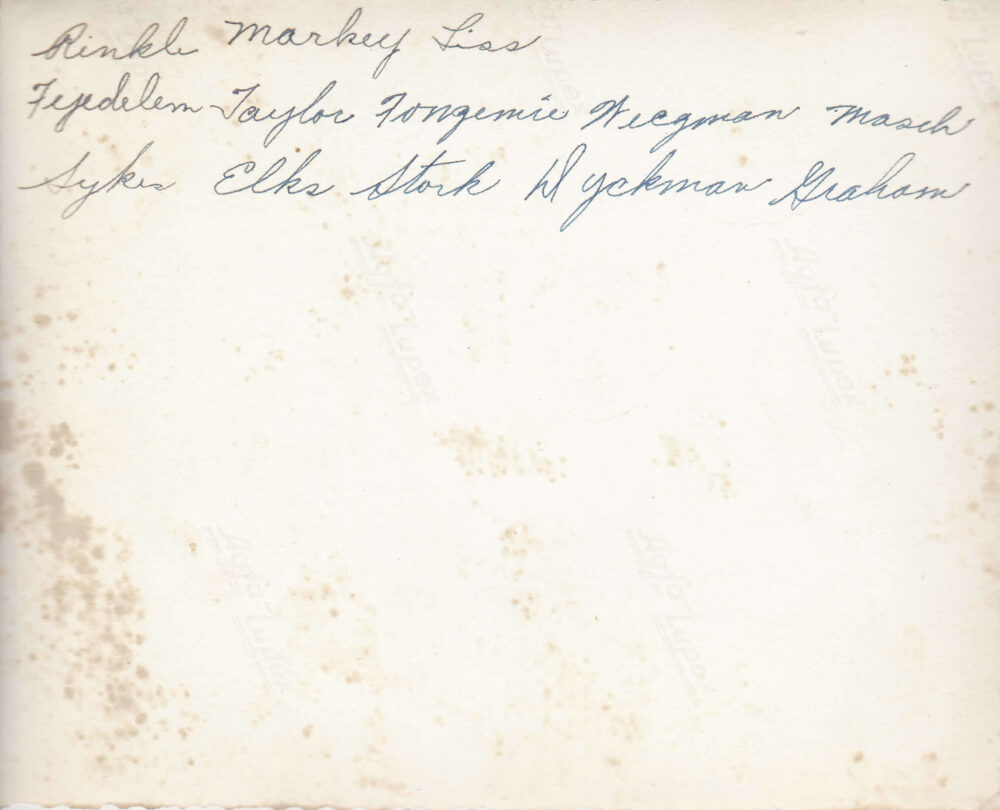 Rinkle Markey Liss
Fejedelem Taylor Fongemie Wiegman Masch
Sykes Elks Stork Dyckman Graham
Agfa Lupex
Agfa Lupex
Agfa Lupex
Agfa Lupex